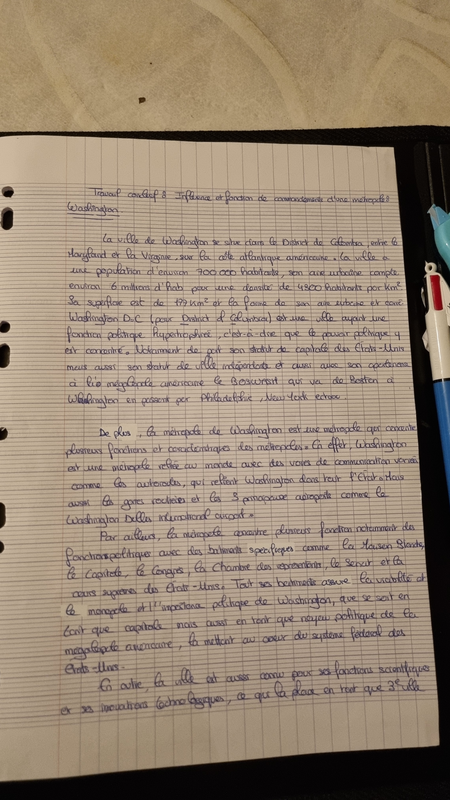 Travail conclusif : Influence et fonction de commandements d'une métropole :
Washington.
La ville de Washington se situe dans le District de Columbia, entre le
Maryland et la Virginie, sur la côte atlantique américaine. La ville à
une population d'environ 700 000 habitants, son aire urbaine compte
environ 6 millions d'hab pour une densité de 4300 habitants par km².
Sa superficie est de 177 km² et la forme de son aire urbaine est carré
Washington D.C (pour District of Columbia) est une ville ayant une
fonction politique hypertrophiée, c'est-à-dire que le pouvoir politique y
est concentré. Notamment de part son statut de capitale des États-Unis
mais aussi son statut de ville indépendante et aussi avec son apartenance
à la mégalopole américaine le Boswash qui va de Boston à
Washington en passant par Philadelphie, New York
De plus, la métropole de Washington est une métropole qui concentre
plusieurs fonctions et caractéristiques des métropoles. En effet, Washington
est une métropole reliée au monde avec des voies de communication variées
comme les autoroutes, qui relient Washington dans tout l'État. Mais
aussi les gares routières et les 3 aéroports comme le
Washington Dulles international airport.
Par ailleurs, la métropole concentre plusieurs fonction notamment des
fonctions politique avec des batiments spécifiques comme la Maison Blanche,
le Capitole, le Congrès, la Chambre des représentants, le Sénat et la
cours suprême des États-Unis. Tout ses bâtiments assure la visibilité de
la métropole et l'importance politique de Washington, que se soit en
tant que capitale mais aussi en tant que noyau politique de la
mégalopole américaine, la mettant au coeur du système fédérale des
États-Unis.
En outre, la ville est aussi connu pour ses fonctions scientifiques
et ses inovations technologiques, ce qui la place en tant que 3e ville